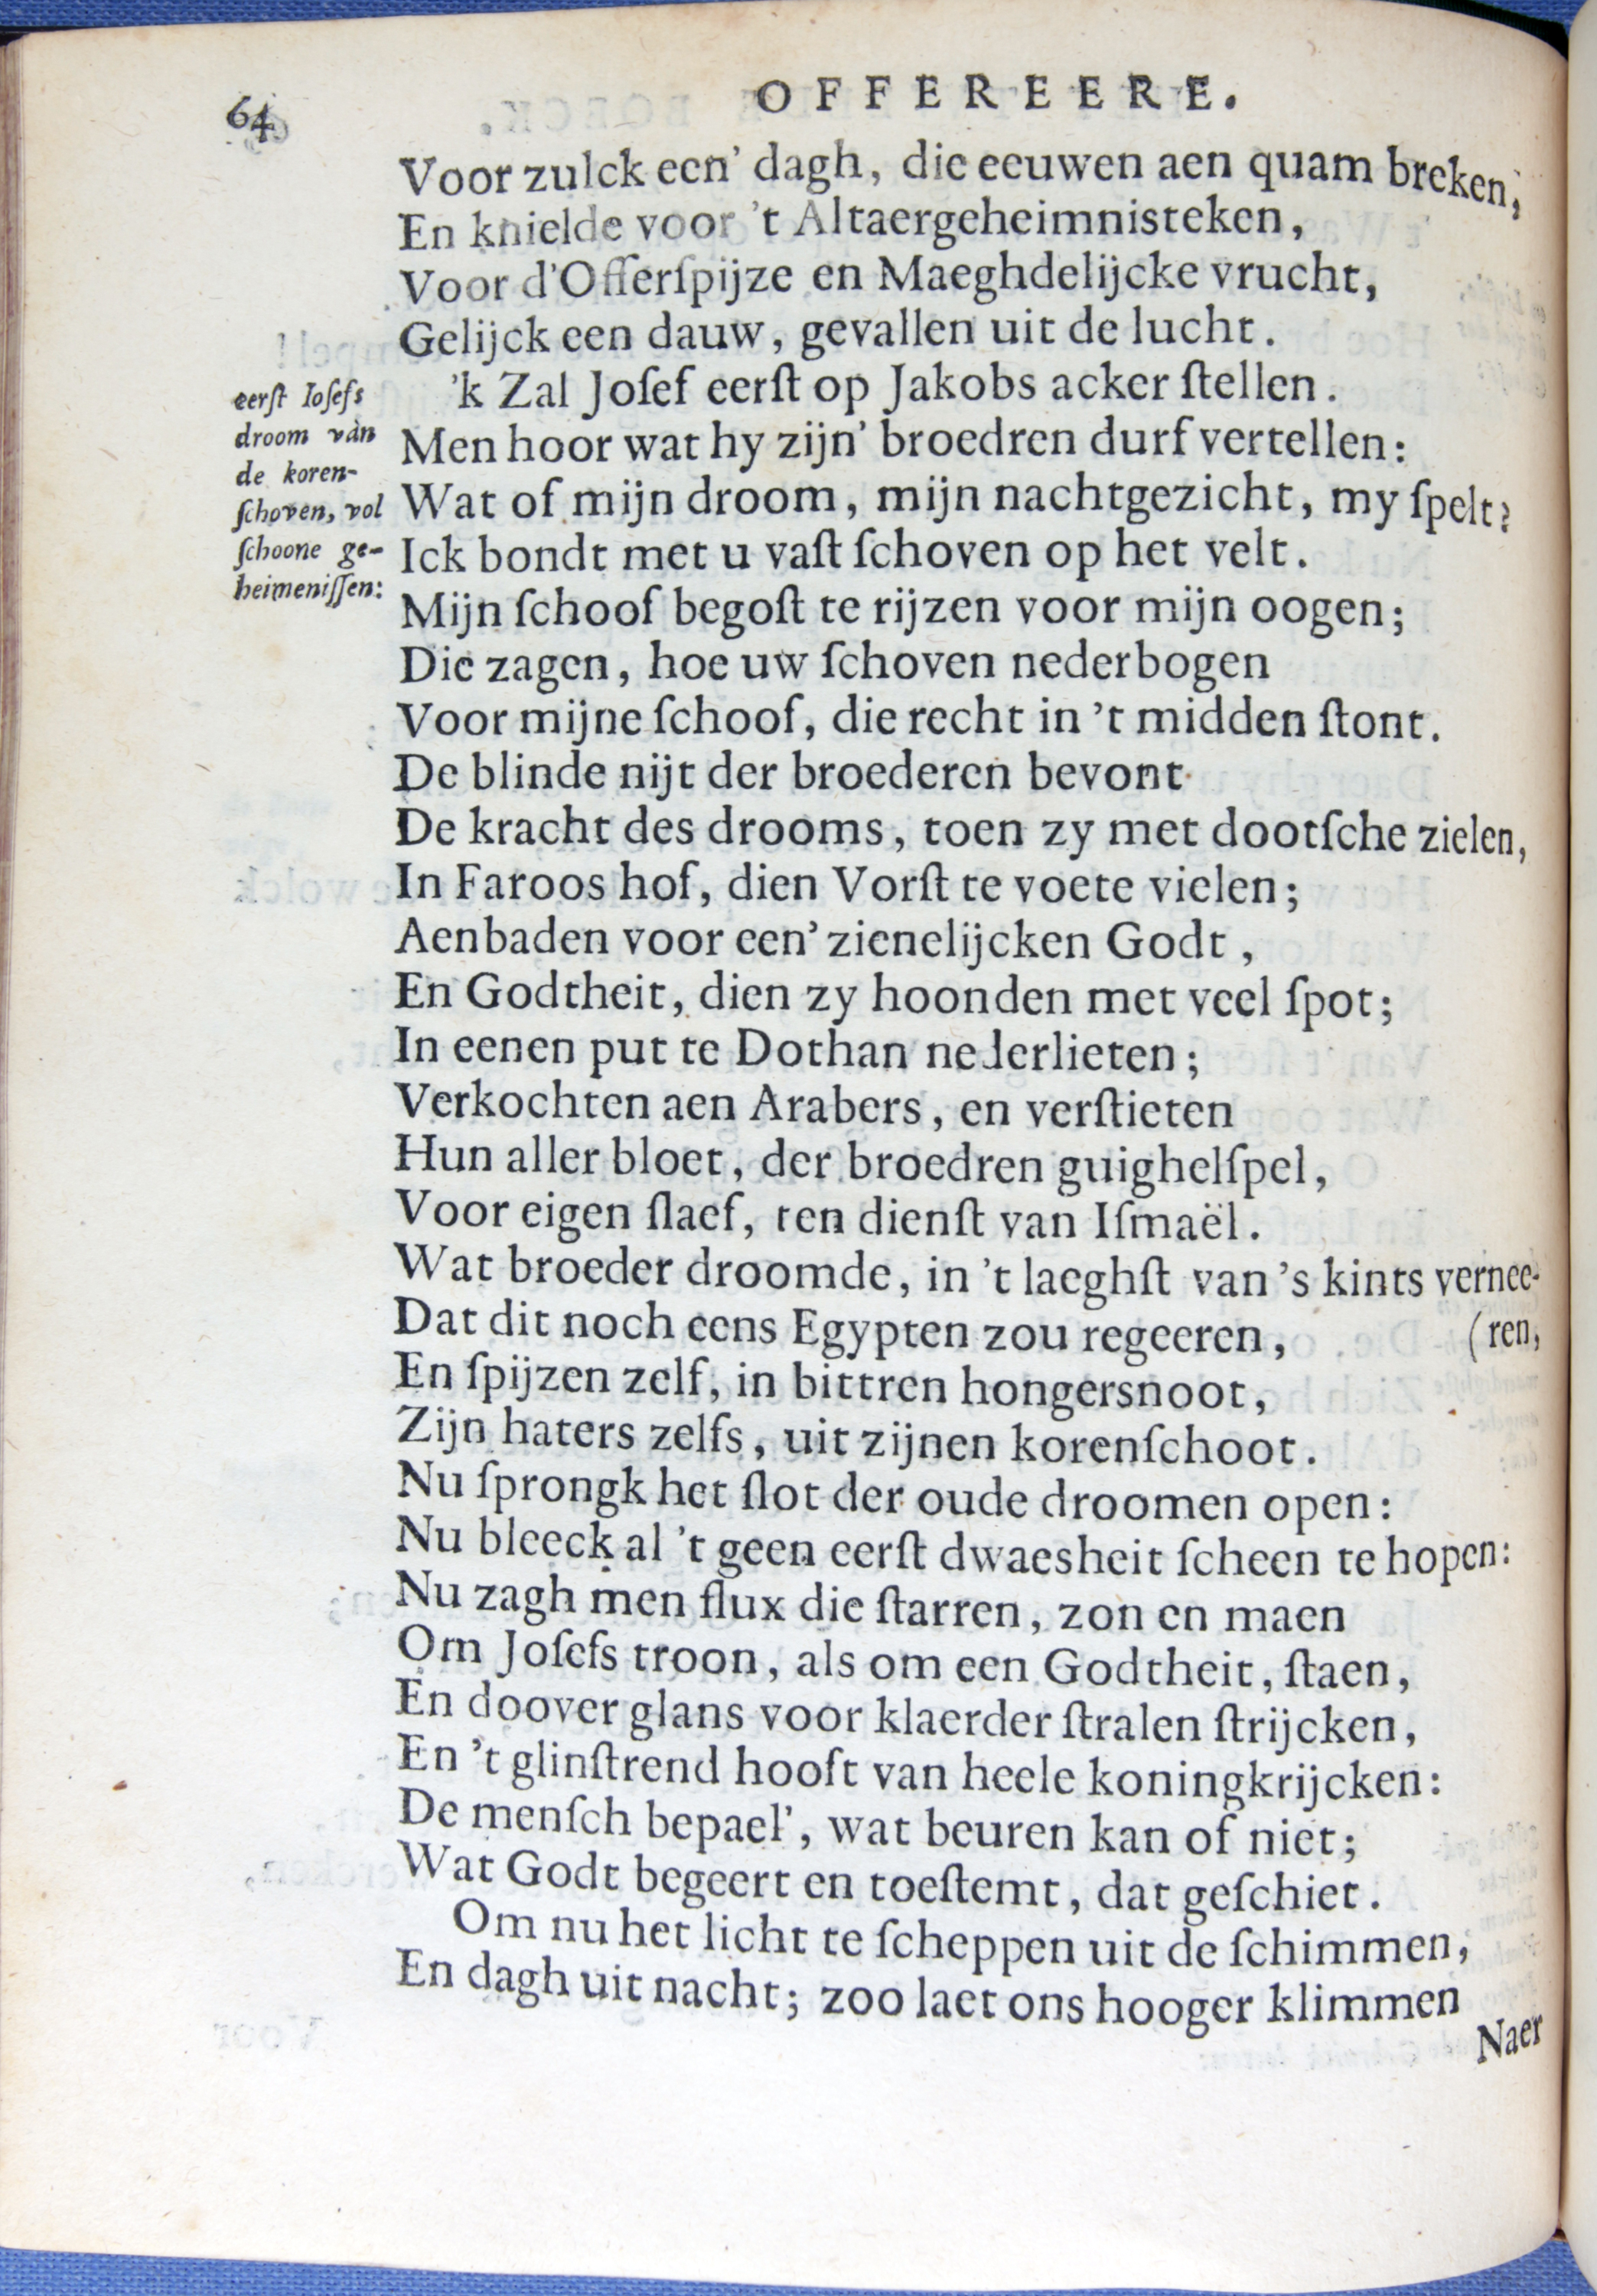 64
OFFEREERE.
Voor zulck een' dagh, die eeuwen aen quam breken,
En knielde voor 't Altaergeheimnisteken,
Voor d'Offerſpijze en Maeghdelijcke vrucht,
Gelijck een dauw, gevallen uit de lucht.
'k Zal Joſef eerſt op Jakobs acker ſtellen.
Men hoor wat hy zijn' broedren durf vertellen:
Wat of mijn droom, mijn nachtgezicht, my ſpelt?
Ick bondt met u vaſt ſchoven op het velt.
Mijn ſchoof begoſt te rijzen voor mijn oogen;
Die zagen, hoe uw ſchoven nederbogen
Voor mijne ſchoof, die recht in 't midden ſtont.
De blinde nijt der broederen bevont
De kracht des drooms, toen zy met dootſche zielen,
In Faroos hof, dien Vorſt te voete vielen;
Aenbaden voor een' zienelijcken Godt,
En Godtheit, dien zy hoonden met veel ſpot;
In eenen put te Dothan nederlieten;
Verkochten aen Arabers, en verſtieten
Hun aller bloet, der broedren guighelſpel,
Voor eigen ſlaef, ten dienſt van Iſmaël.
Wat broeder droomde, in 't laeghſt van 's kints vernee-
Dat dit noch eens Egypten zou regeeren, (ren,
En ſpijzen zelf, in bittren hongersnoot,
Zijn haters zelfs, uit zijnen korenſchoot.
Nu ſprongk het ſlot der oude droomen open:
Nu bleeck al 't geen eerſt dwaesheit ſcheen te hopen:
Nu zagh men flux die ſtarren, zon en maen
Om Joſefs troon, als om een Godtheit, ſtaen,
En doover glans voor klaerder ſtralen ſtrijcken,
En 't glinſtrend hooft van heele koningkrijcken:
De menſch bepael', wat beuren kan of niet;
Wat Godt begeert en toeſtemt, dat geſchiet.
Om nu het licht te ſcheppen uit de ſchimmen,
En dagh uit nacht; zoo laet ons hooger klimmen
Naer
eerſt Ioſefs
droom van
de koren-
ſchoven, vol
ſchoone ge-
heimeniſſen: